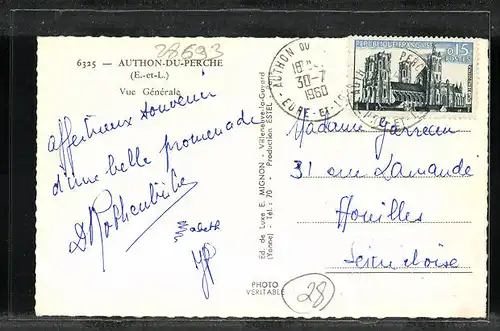 28693
6325 - AUTHON-DU-PERCHE
(E.-et-L.)
Vue Générale
affectueux souvenir
d'une belle promenade
Elisabeth
JP
Ed. de Luxe E. MIGNON - Villeneuve-la-Guyard
(Yonne) - Tél.: 70 - Production ESTEL
PHOTO
VERITABLE
28
AUTHON DU
30-7
1960
EURE-ET-L
REPUBLIQUE FRANÇAISE
0,15
POSTES
Madame Garreau
31 rue Lamandé
Houilles
Seine et Oise